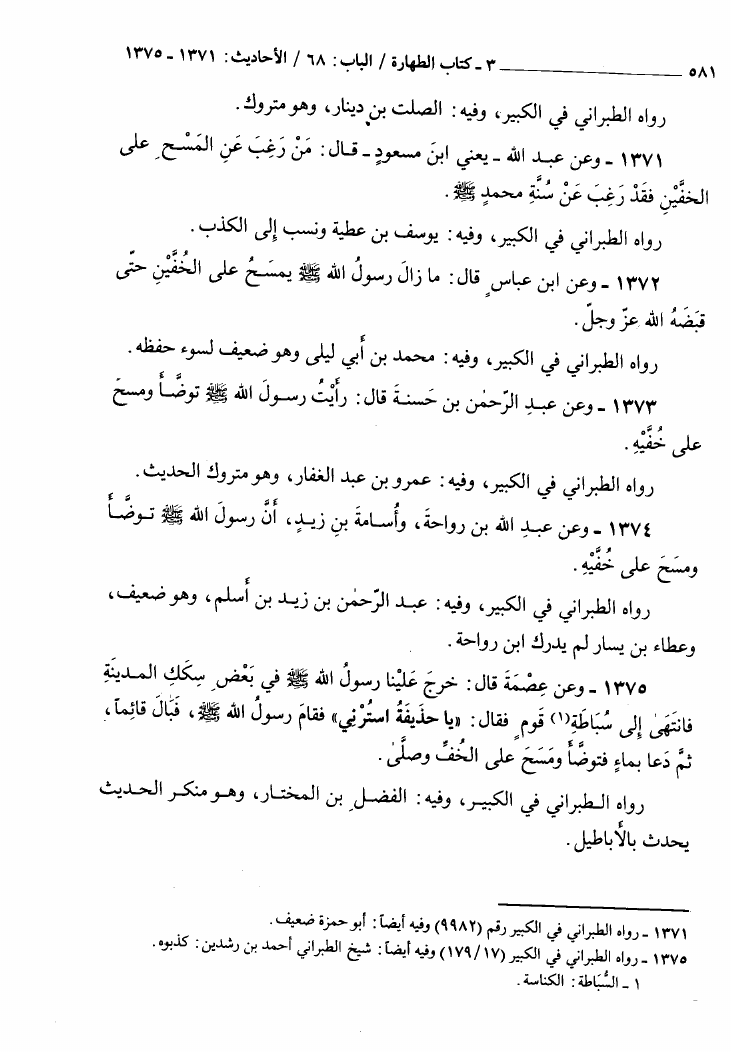 ٥٨١ ــــــــــــــــــــ ٣ - كتاب الطهارة / الباب: ٦٨ / الأحاديث: ١٣٧١ - ١٣٧٥
رواه الطبراني في الكبير، وفيه: الصلت بن دينار، وهو متروك.
١٣٧١ - وعن عبد الله - يعني ابنَ مسعودٍ - قال: مَنْ رَغِبَ عَنِ المَسْحِ على
الخفَّيْنِ فقَدْ رَغِبَ عَنْ سُنَّةِ محمدٍ ﷺ.
رواه الطبراني في الكبير، وفيه: يوسف بن عطية ونسب إلى الكذب.
١٣٧٢ - وعن ابن عباسٍ قال: ما زالَ رسولُ الله ﷺ يمسَحُ على الخُفَّيْنِ حتّى
قبَضَهُ الله عزّ وجلّ.
رواه الطبراني في الكبير، وفيه: محمد بن أبي ليلى وهو ضعيف لسوء حفظه.
١٣٧٣ - وعن عبدِ الرّحمٰن بن حَسنةَ قال: رأَيْتُ رسولَ الله ﷺ توضَّأ ومسحَ
على خُفَّيْهِ.
رواه الطبراني في الكبير، وفيه: عمرو بن عبد الغفار، وهو متروك الحديث.
١٣٧٤ - وعن عبدِ الله بن رواحةَ، وأُسامةَ بنِ زيدٍ، أنَّ رسولَ الله ﷺ توضَّأَ
ومسَحَ على خُفَّيْهِ.
رواه الطبراني في الكبير، وفيه: عبد الرّحمٰن بن زيد بن أسلم، وهو ضعيف،
وعطاء بن يسار لم يدرك ابن رواحة.
١٣٧٥ - وعن عِصْمَةَ قال: خرجَ علَيْنا رسولُ الله ﷺ في بَعْضِ سِكَكِ المدينَةِ
فانتَهَىٰ إلى سُبَاطَةِ(١) قومٍ فقال: «يا حذيفَةُ استُرْني» فقامَ رسولُ الله ﷺ، فَبَالَ قائِماً،
ثمَّ دَعا بماءٍ فتوضَّأ ومَسَحَ على الخُفِّ وصلَّىٰ.
رواه الطبراني في الكبير، وفيه: الفضل بن المختار، وهو منكر الحديث
يحدث بالأباطيل.
١٣٧١ - رواه الطبراني في الكبير رقم (٩٩٨٢) وفيه أيضاً: أبو حمزة ضعيف.
١٣٧٥ - رواه الطبراني في الكبير (١٧٩/١٧) وفيه أيضاً: شيخ الطبراني أحمد بن رشدين: كذبوه.
١ - السُّبَاطة: الكناسة.